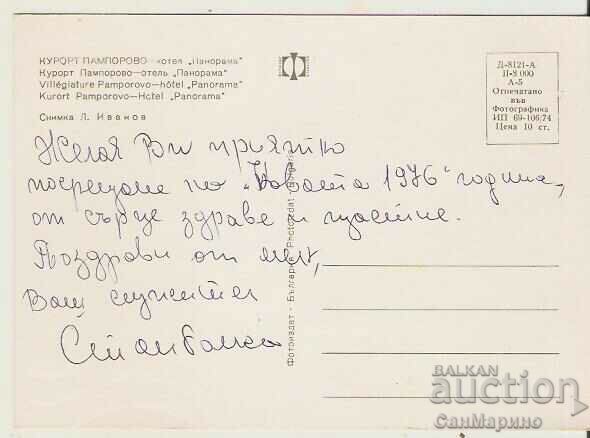 КУРОРТ ПАМПОРОВО—хотел „Панорама"
Курорт Пампорово—отель „Панорама"
Villégiature Pamporovo—hôtel „Panorama"
Kurort Pamporovo—Hotel „Panorama"
Снимка Л. Иванов
Д-8121-А
II-8 000
А-5
Отпечатано
във
Фотографика
ИП 69-106/74
Цена 10 ст.
Желая Ви приятно
посрещане на „Новата 1976" година,
от сърце здраве и щастие.
Поздрави от мен,
Ваш
Фотоиздат - България Photoizdat - Bulgaria
BALKAN
auction
СанМарино